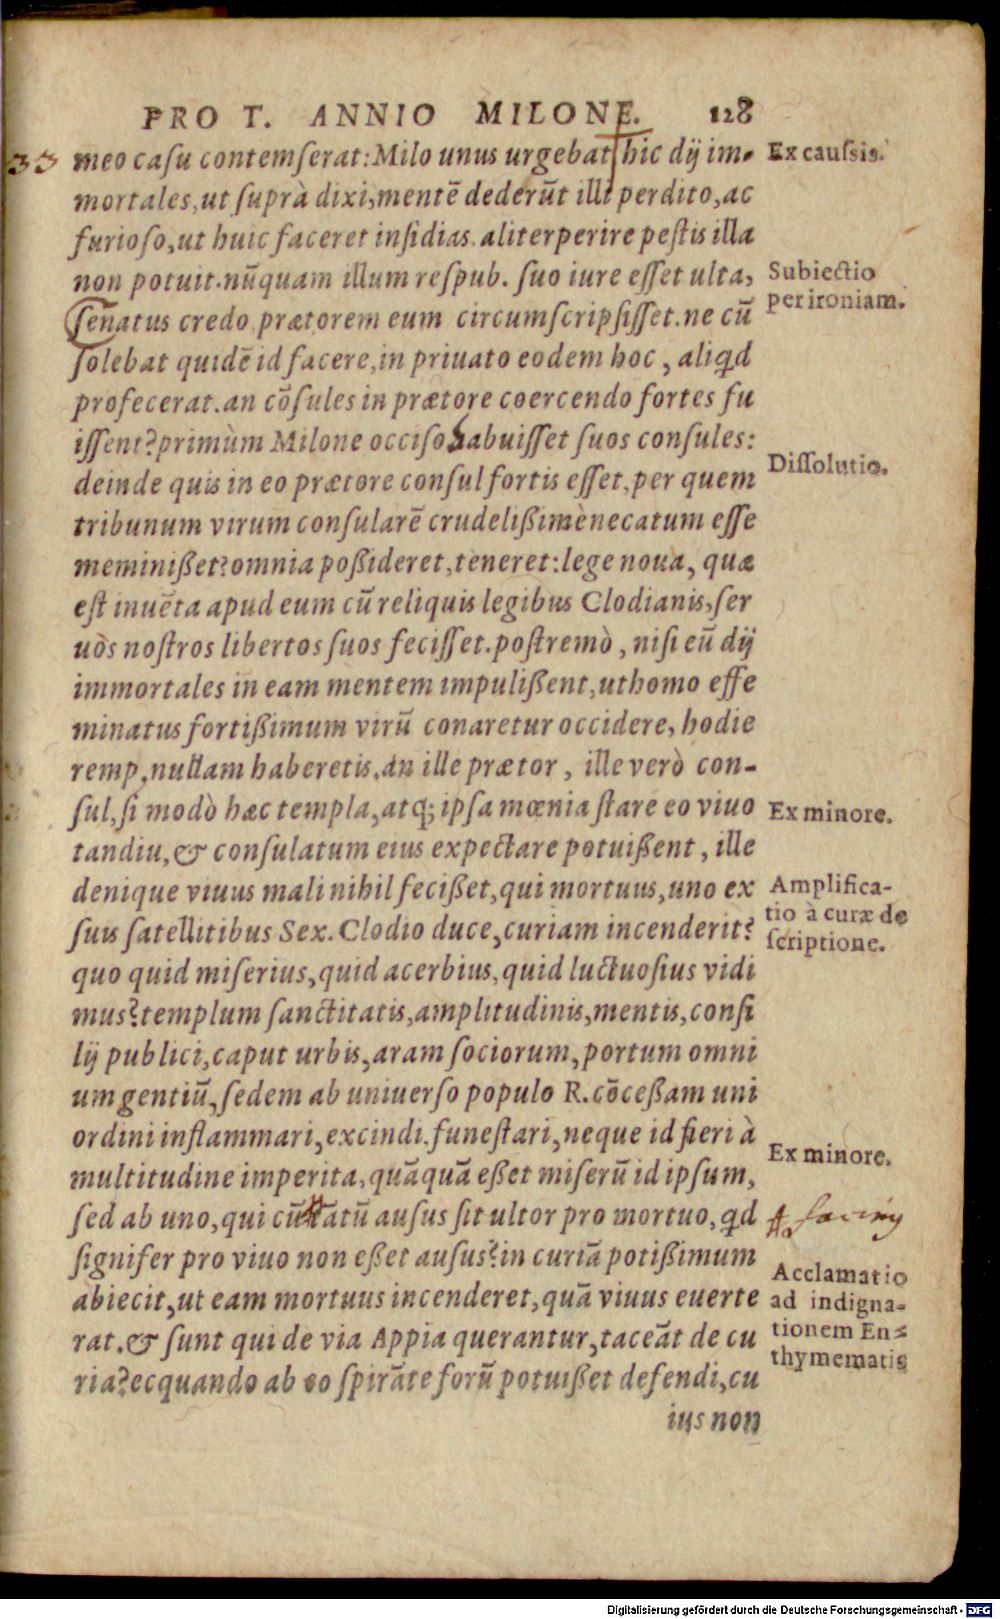 PRO T. ANNIO MILONE. 128
33 meo casu contemserat: Milo unus urgebat hic dij im-
Ex caussis.
mortales, ut suprà dixi, mentē dederūt illi perdito, ac
furioso, ut huic faceret insidias. aliter perire pestis illa
non potuit. nūquam illum respub. suo iure esset ulta,
Subiectio
per ironiam.
senatus credo prætorem eum circumscripsisset. ne cū
solebat quidē id facere, in priuato eodem hoc, aliqd
profecerat. an cōsules in prætore coercendo fortes fu
issent? primùm Milone occiso habuisset suos consules:
Dissolutio.
deinde quis in eo prætore consul fortis esset, per quem
tribunum virum consularē crudelißimè necatum esse
meminißet? omnia poßideret, teneret: lege noua, quæ
est inuēta apud eum cū reliquis legibus Clodianis, ser
uos nostros libertos suos fecisset. postremò, nisi eū dij
immortales in eam mentem impulißent, ut homo effe
minatus fortißimum virū conaretur occidere, hodie
remp. nullam haberetis. an ille prætor, ille verò con-
sul, si modò hæc templa, atq; ipsa mœnia stare eo viuo
Ex minore.
tandiu, & consulatum eius expectare potuißent, ille
denique viuus mali nihil fecißet, qui mortuus, uno ex
Amplifica-
tio à curæ de
scriptione.
suis satellitibus Sex. Clodio duce, curiam incenderit?
quo quid miserius, quid acerbius, quid luctuosius vidi
mus? templum sanctitatis, amplitudinis, mentis, consi
lij publici, caput urbis, aram sociorum, portum omni
um gentiū, sedem ab uniuerso populo R. cōceßam uni
ordini inflammari, excindi. funestari, neque id fieri à
Ex minore.
multitudine imperita, quāquā eßet miserū id ipsum,
sed ab uno, qui cū tātū ausus sit ultor pro mortuo, qd
signifer pro viuo non eßet ausus? in curiā potißimum
Acclamatio
ad indigna-
tionem En-
thymematis
abiecit, ut eam mortuus incenderet, quā viuus euerte
rat. & sunt qui de via Appia querantur, taceāt de cu
ria? ecquando ab eo spirāte forū potuißet defendi, cu
ius non
Digitalisierung gefördert durch die Deutsche Forschungsgemeinschaft - DFG